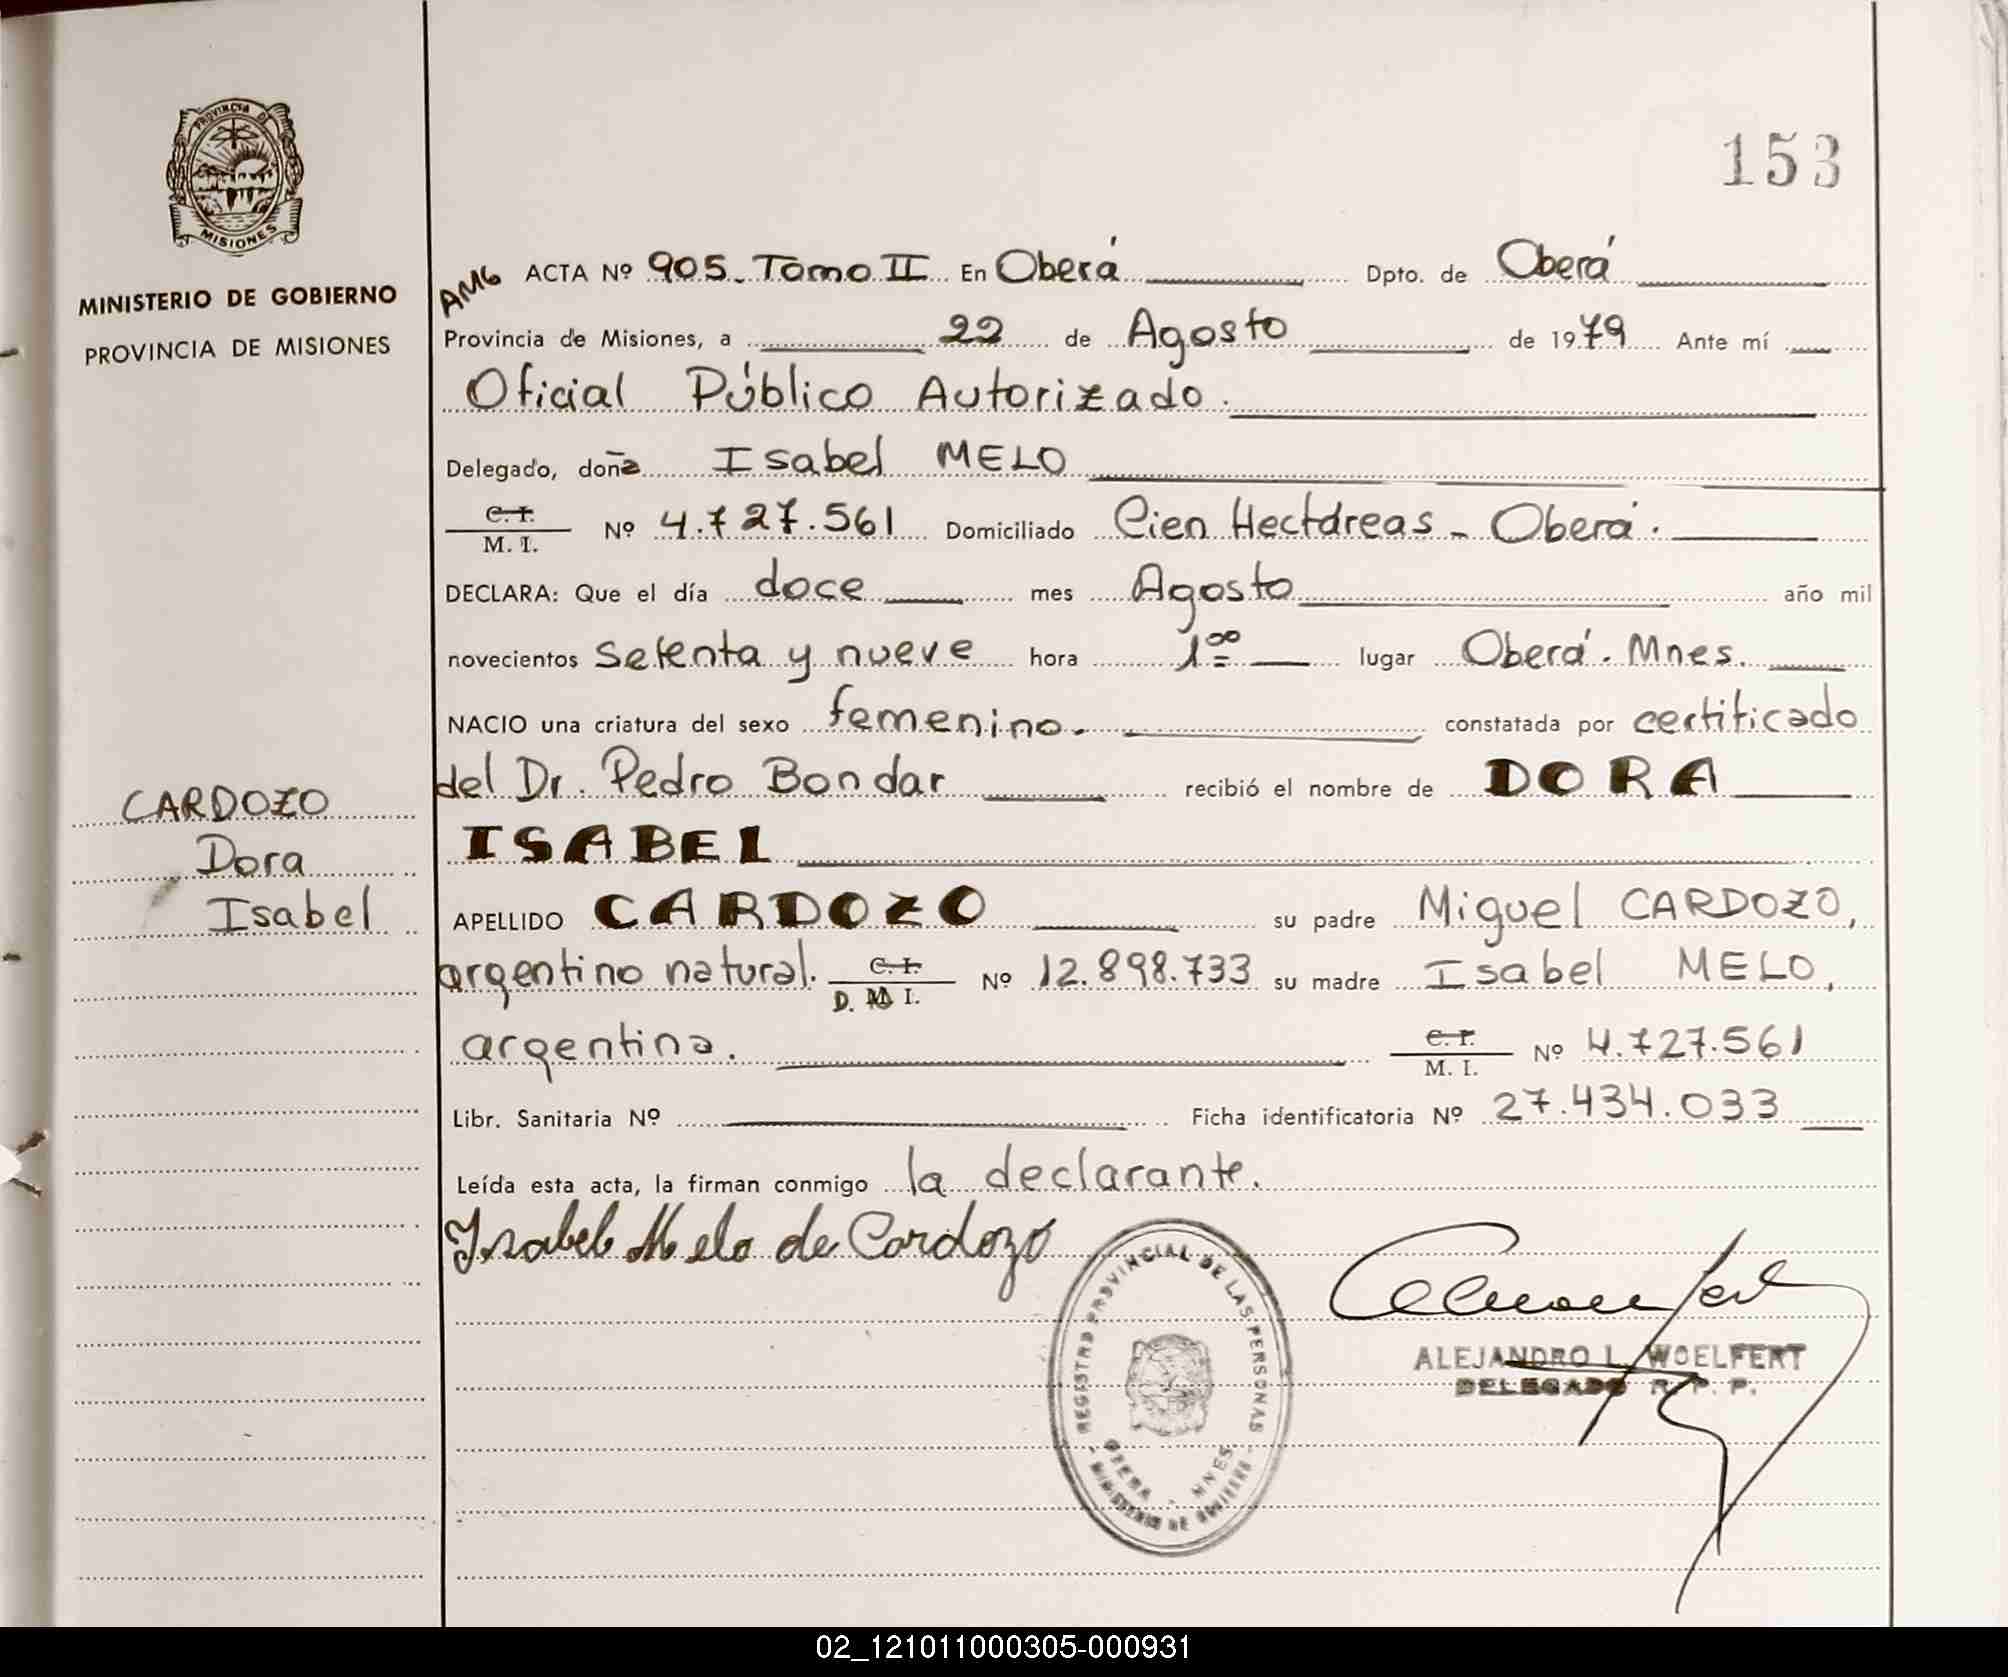 PROVINCIA DE
MISIONES
MINISTERIO DE GOBIERNO
PROVINCIA DE MISIONES
153
AMG ACTA Nº 905. Tomo II En Oberá Dpto. de Oberá
Provincia de Misiones, a 22 de Agosto de 1979 Ante mí
Oficial Público Autorizado.
Delegado, doña Isabel MELO
C. I.
M. I. Nº 4.727.561 Domiciliado Cien Hectáreas - Oberá.
DECLARA: Que el día doce mes Agosto año mil
novecientos setenta y nueve hora 1⁰⁰ lugar Oberá. Mnes.
NACIO una criatura del sexo femenino. constatada por certificado
del Dr. Pedro Bondar recibió el nombre de DORA
ISABEL
CARDOZO
Dora
Isabel
APELLIDO CARDOZO su padre Miguel CARDOZO,
argentino natural. C. I.
D. M I. Nº 12.898.733 su madre Isabel MELO,
argentina. C. I.
M. I. Nº 4.727.561
Libr. Sanitaria Nº Ficha identificatoria Nº 27.434.033
Leída esta acta, la firman conmigo la declarante.
Isabel Melo de Cardozo
REGISTRO PROVINCIAL DE LAS PERSONAS
OBERA - MNES
MINISTERIO DE GOBIERNO
ALEJANDRO L. WOELFERT
DELEGADO R. P. P.
02_121011000305-000931